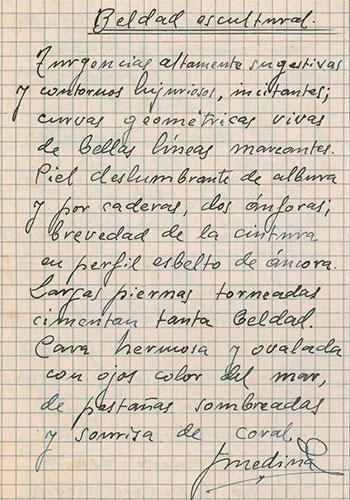 Beldad escultural.
Turgencias altamente sugestivas
y contornos lujuriosos, incitantes;
curvas geométricas vivas
de bellas líneas mareantes.
Piel deslumbrante de albura
y por caderas, dos ánforas;
brevedad de la cintura
en perfil esbelto de áncora.
Largas piernas torneadas
cimentan tanta beldad.
Cara hermosa y ovalada
con ojos color del mar,
de pestañas sombreadas
y sonrisa de coral.
Jmedina